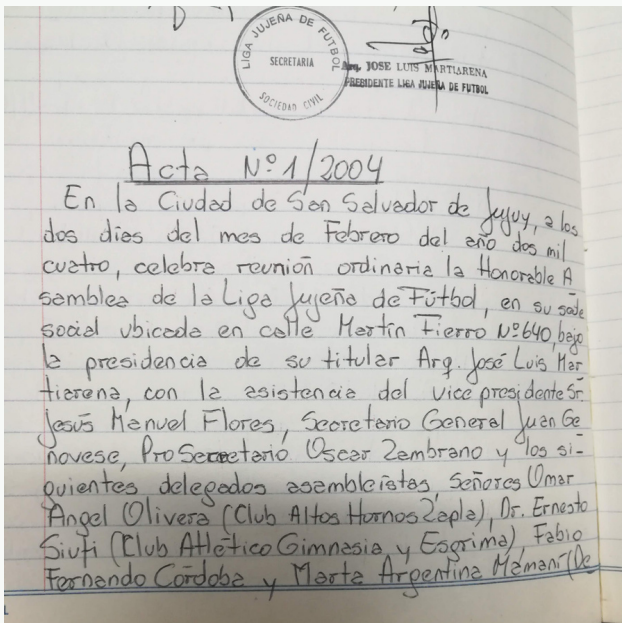 LIGA JUJEÑA DE FUTBOL
SECRETARIA
SOCIEDAD CIVIL
Arq. JOSE LUIS MARTIARENA
PRESIDENTE LIGA JUJEÑA DE FUTBOL
Acta Nº 1/2004
En la Ciudad de San Salvador de Jujuy, a los
dos días del mes de Febrero del año dos mil
cuatro, celebra reunión ordinaria la Honorable A
samblea de la Liga Jujeña de Fútbol, en su sede
social ubicada en calle Martín Fierro Nº 640, bajo
la presidencia de su titular Arq. José Luis Mar
tiarena, con la asistencia del vice presidente Sr.
Jesús Manuel Flores, Secretario General Juan Ge
novese, Pro Secretario Oscar Zambrano y los si-
guientes delegados asambleístas, Señores Omar
Angel Olivera (Club Altos Hornos Zapla), Dr. Ernesto
Siufi (Club Atlético Gimnasia y Esgrima), Fabio
Fernando Córdoba y Marta Argentina Mamaní (De